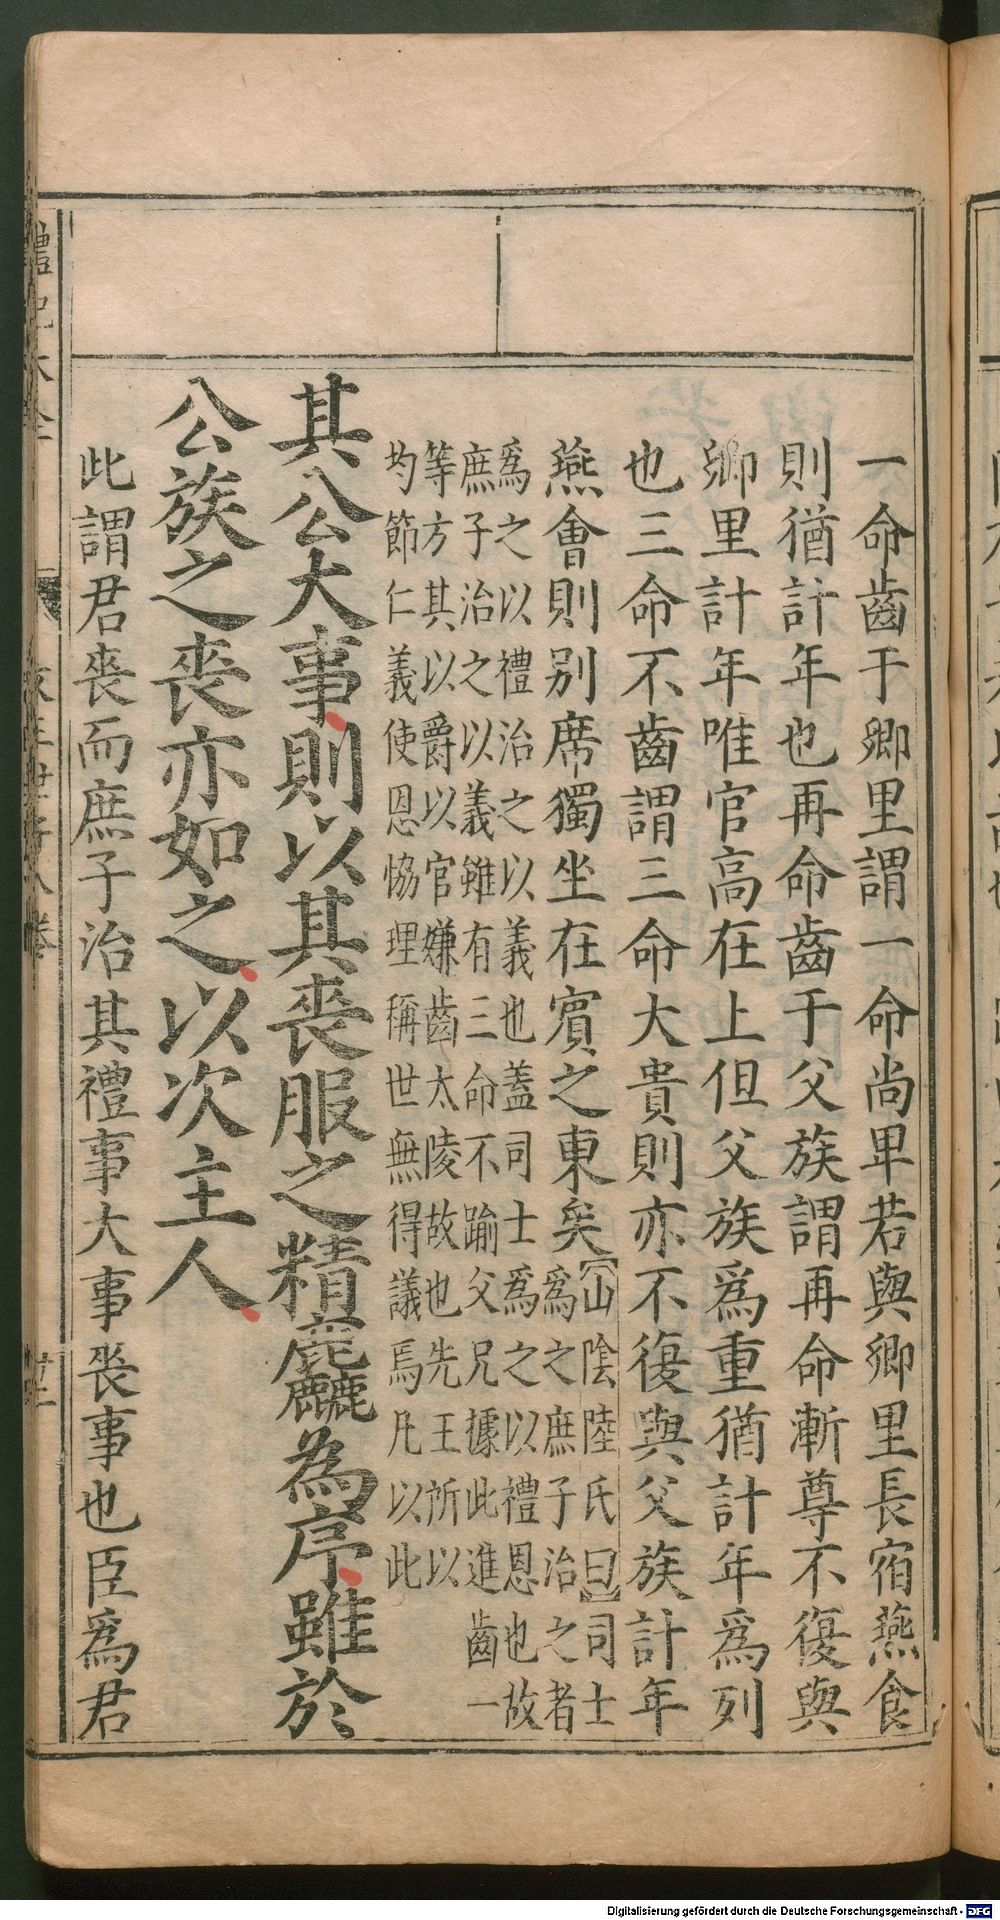 一命齒于鄉里謂一命尚卑若與鄉里長宿燕食
則猶計年也再命齒于父族謂再命漸尊不復與
鄉里計年唯官高在上但父族爲重猶計年爲列
也三命不齒謂三命大貴則亦不復與父族計年
燕會則别席獨坐在賓之東矣【山陰陸氏曰】司士
爲之庶子治之者
爲之以禮治之以義也盖司士爲之以禮恩也故
庶子治之以義雖有三命不踰父兄據此進齒一
等方其以爵以官嫌齒太陵故也先王所以
均節仁義使恩協理稱世無得議焉凡以此
其公大事則以其喪服之精麤為序雖於
公族之喪亦如之以次主人
此謂君喪而庶子治其禮事大事喪事也臣爲君
Digitalisierung gefördert durch die Deutsche Forschungsgemeinschaft - DFG